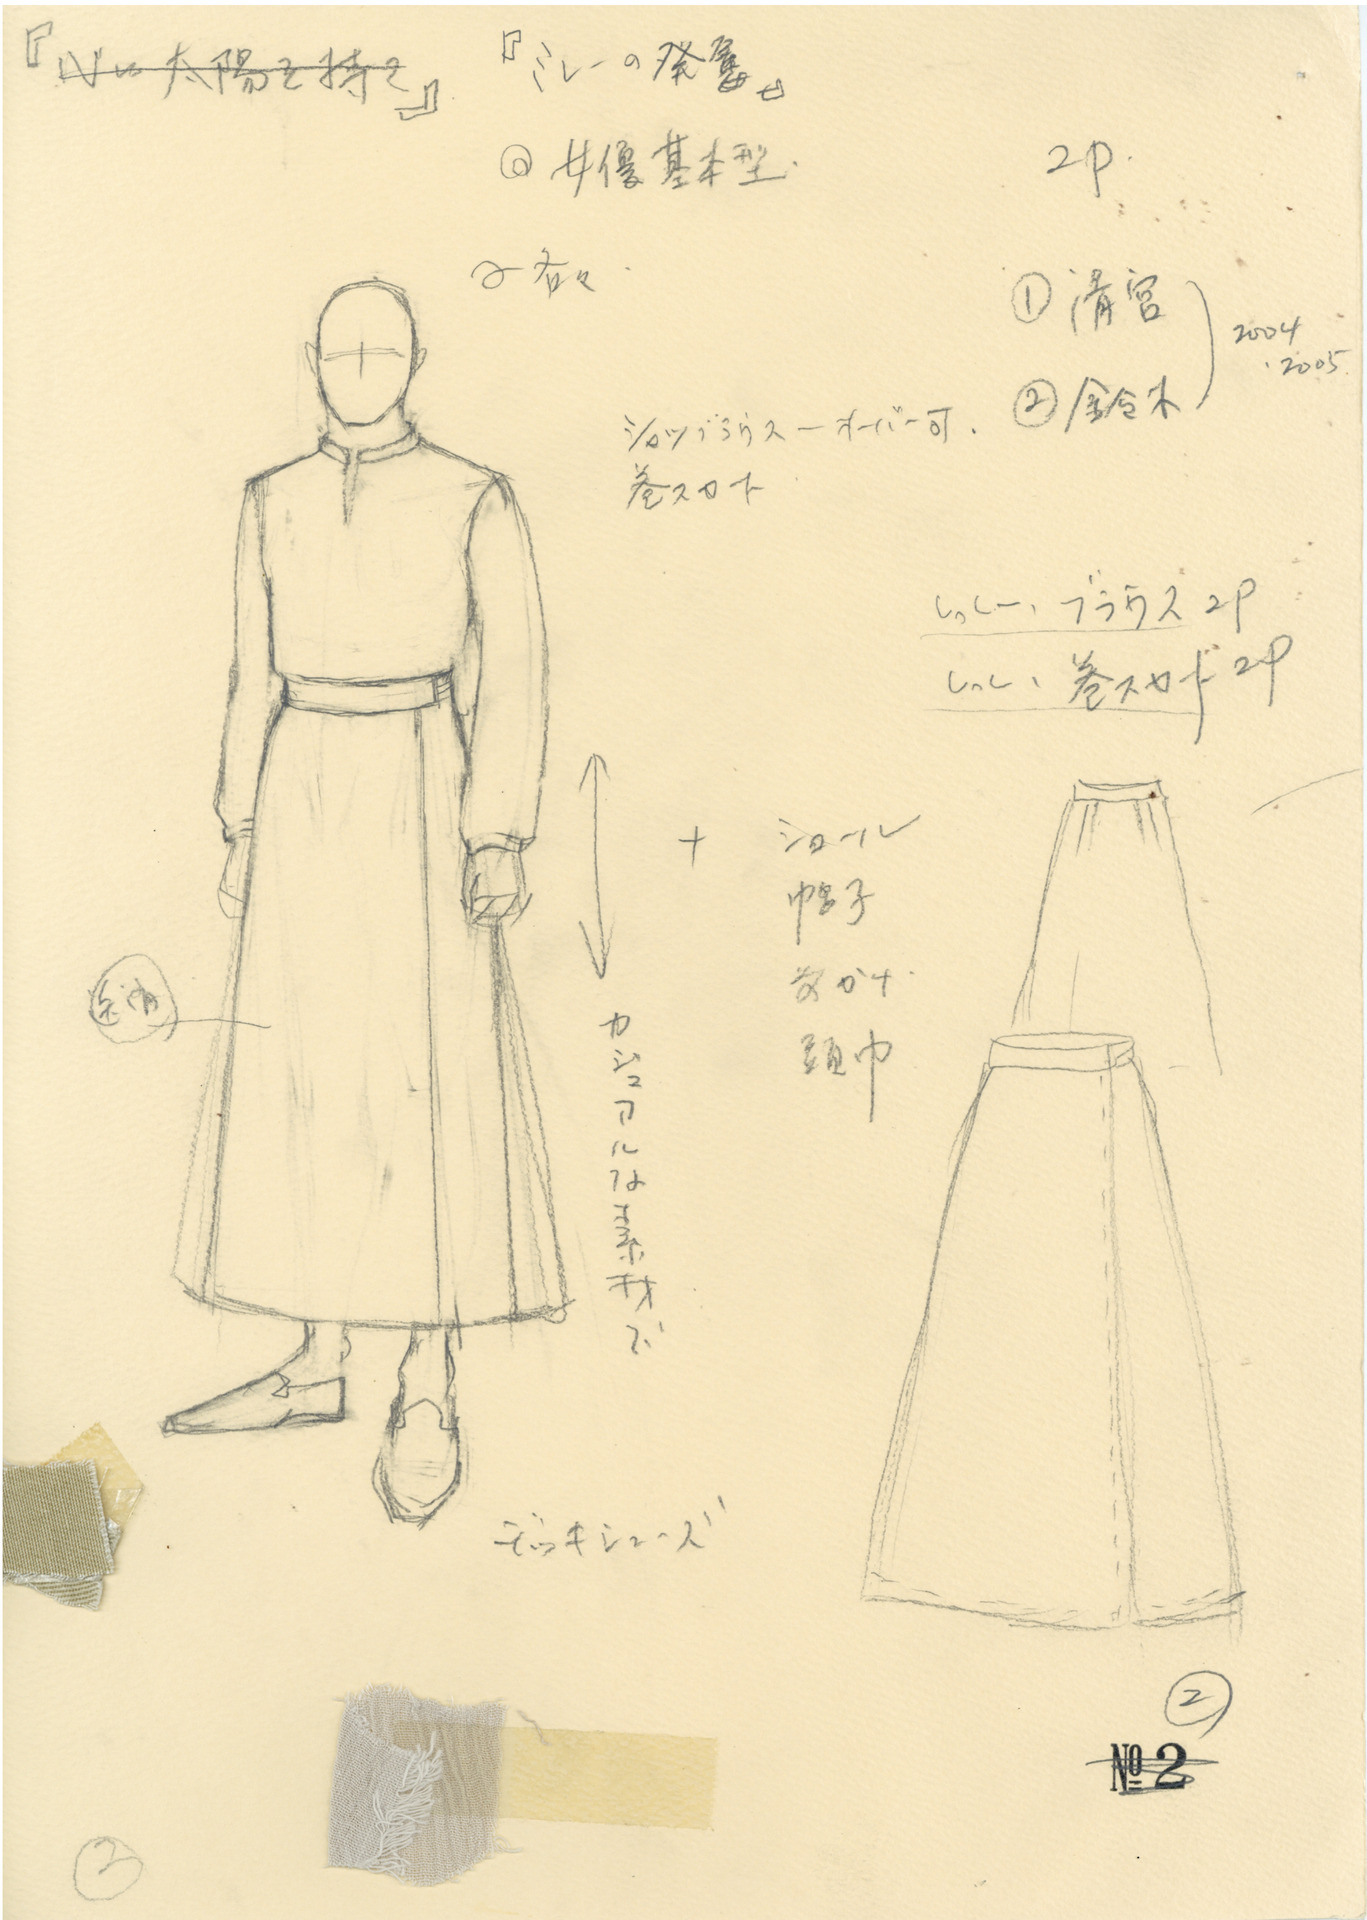 『心に太陽を持て』
『ミレーの発展』
◎女優基本型.
2P.
〜各々.
① 清宮
② 鈴木
2004
.2005.
シャツブラウス ー オーバー可.
巻スカート
ブラウス 2P
巻スカート 2P
+
ショール
帽子
前かけ.
頭巾
カジュアルな素材で
デッキシューズ
②
№2